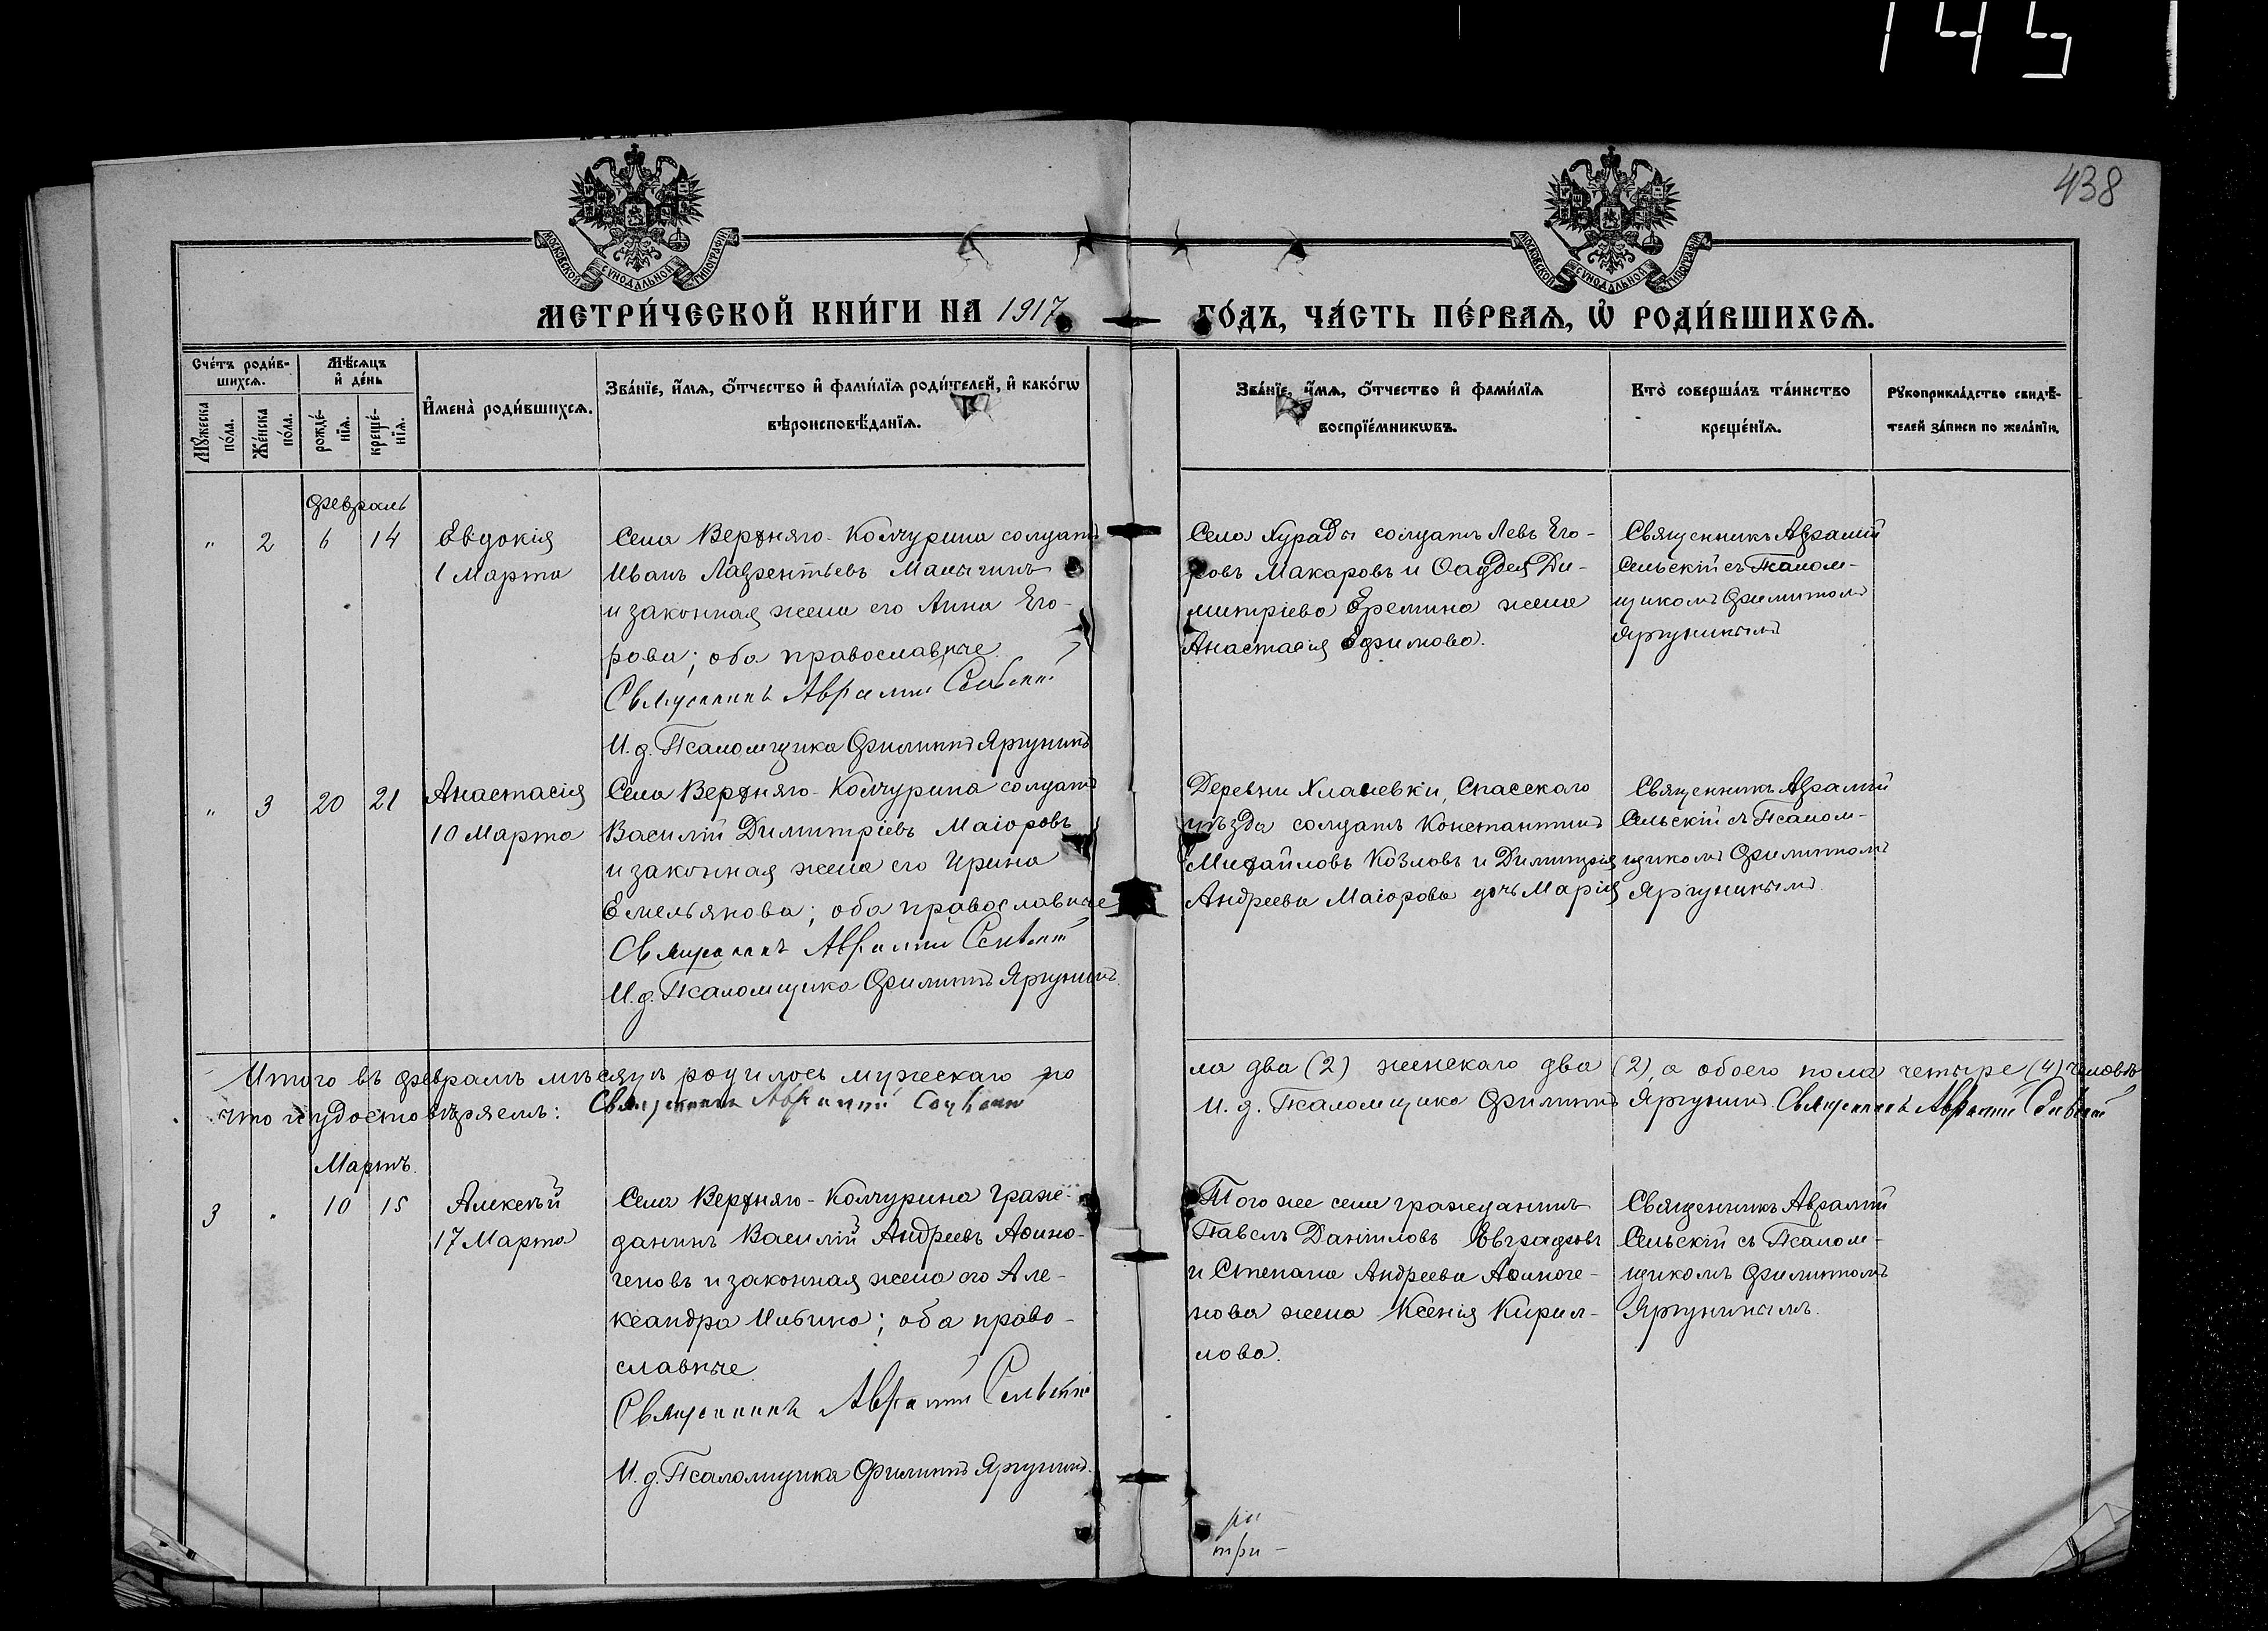 145
438
МОСКОВСКОЙ СѴНОДАЛЬНОЙ ТИПОГРАФІИ
МОСКОВСКОЙ СѴНОДАЛЬНОЙ ТИПОГРАФІИ
МЕТРИ́ЧЕСКОЙ КНИ́ГИ НА 1917 ГО́ДЪ, ЧА́СТЬ ПЕ́РВАѦ, Ѽ РОДИ́ВШИХСѦ.
Сче́тъ роди́в-
шихсѧ.
Мѣ́сѧцъ
и҆ де́нь
Мꙋ́жеска
по́ла.
Же́нска
по́ла.
рожде́-
нїѧ.
креще́-
нїѧ.
И҆мена̀ роди́вшихсѧ.
Зва́нїе, и҆́мѧ, ѻ҆́тчество и҆ фами́лїѧ роди́телей, и҆ како́гѡ
вѣроисповѣ́данїѧ.
Зва́нїе, и҆́мѧ, ѻ҆́тчество и҆ фами́лїѧ
воспрїе́мникѡвъ.
Кто̀ соверша́лъ та́инство
креще́нїѧ.
Рꙋкоприкла́дство свидѣ́-
телей за́писи по жела́нїю.
Февраль
" 2 6 14
Евдокія
1 Марта
Села Верхняго-Колчурина солдатъ
Иванъ Лаврентьевъ Малычинъ
и законная жена его Анна Его-
рова; оба православные
Священникъ Аврамій Сельскій
И. д. Псаломщика Филиппъ Яргунинъ
Села Хурады солдатъ Левъ Его-
ровъ Макаровъ и Ѳаддея Ди-
митріева Еремина жена
Анастасія Ефимова.
Священникъ Аврамій
Сельскій съ Псалом-
щикомъ Филиппомъ
Яргунинымъ
" 3 20 21
Анастасія
10 Марта
Села Верхняго-Колчурина солдатъ
Василій Димитріевъ Маіоровъ
и законная жена его Ирина
Емельянова; оба православные
Священникъ Аврамій Сельскій
И. д. Псаломщика Филиппъ Яргунинъ
Деревни Хлавевки, Спасскаго
уѣзда солдатъ Константинъ
Михайловъ Козловъ и Димитрія
Андреева Маіорова дочь Марія
Священникъ Аврамій
Сельскій съ Псалом-
щикомъ Филиппомъ
Яргунинымъ
Итого въ февралѣ мѣсяцѣ родилось мужескаго по
ла два (2) женскаго два (2), а обоего пола четыре (4) человѣк
что и удостовѣряемъ: Священникъ Аврамій Сельскій
И. д. Псаломщика Филиппъ Яргунинъ. Священникъ Аврамій Сельскій
Мартъ.
3 " 10 15
Алексѣй
17 Марта
Села Верхняго-Колчурина граж-
данинъ Василій Андреевъ Аѳино-
геновъ и законная жена его Але-
ксандра Ильина; оба право-
славные
Священникъ Аврамій Сельскій
И. д. Псаломщика Филиппъ Яргунинъ.
Того же села гражданинъ
Павелъ Даніиловъ Евграфовъ
и Степана Андреева Аѳиноге-
нова жена Ксенія Кирил-
лова.
Священникъ Аврамій
Сельскій съ Псалом-
щикомъ Филиппомъ
Яргунинымъ.
три -